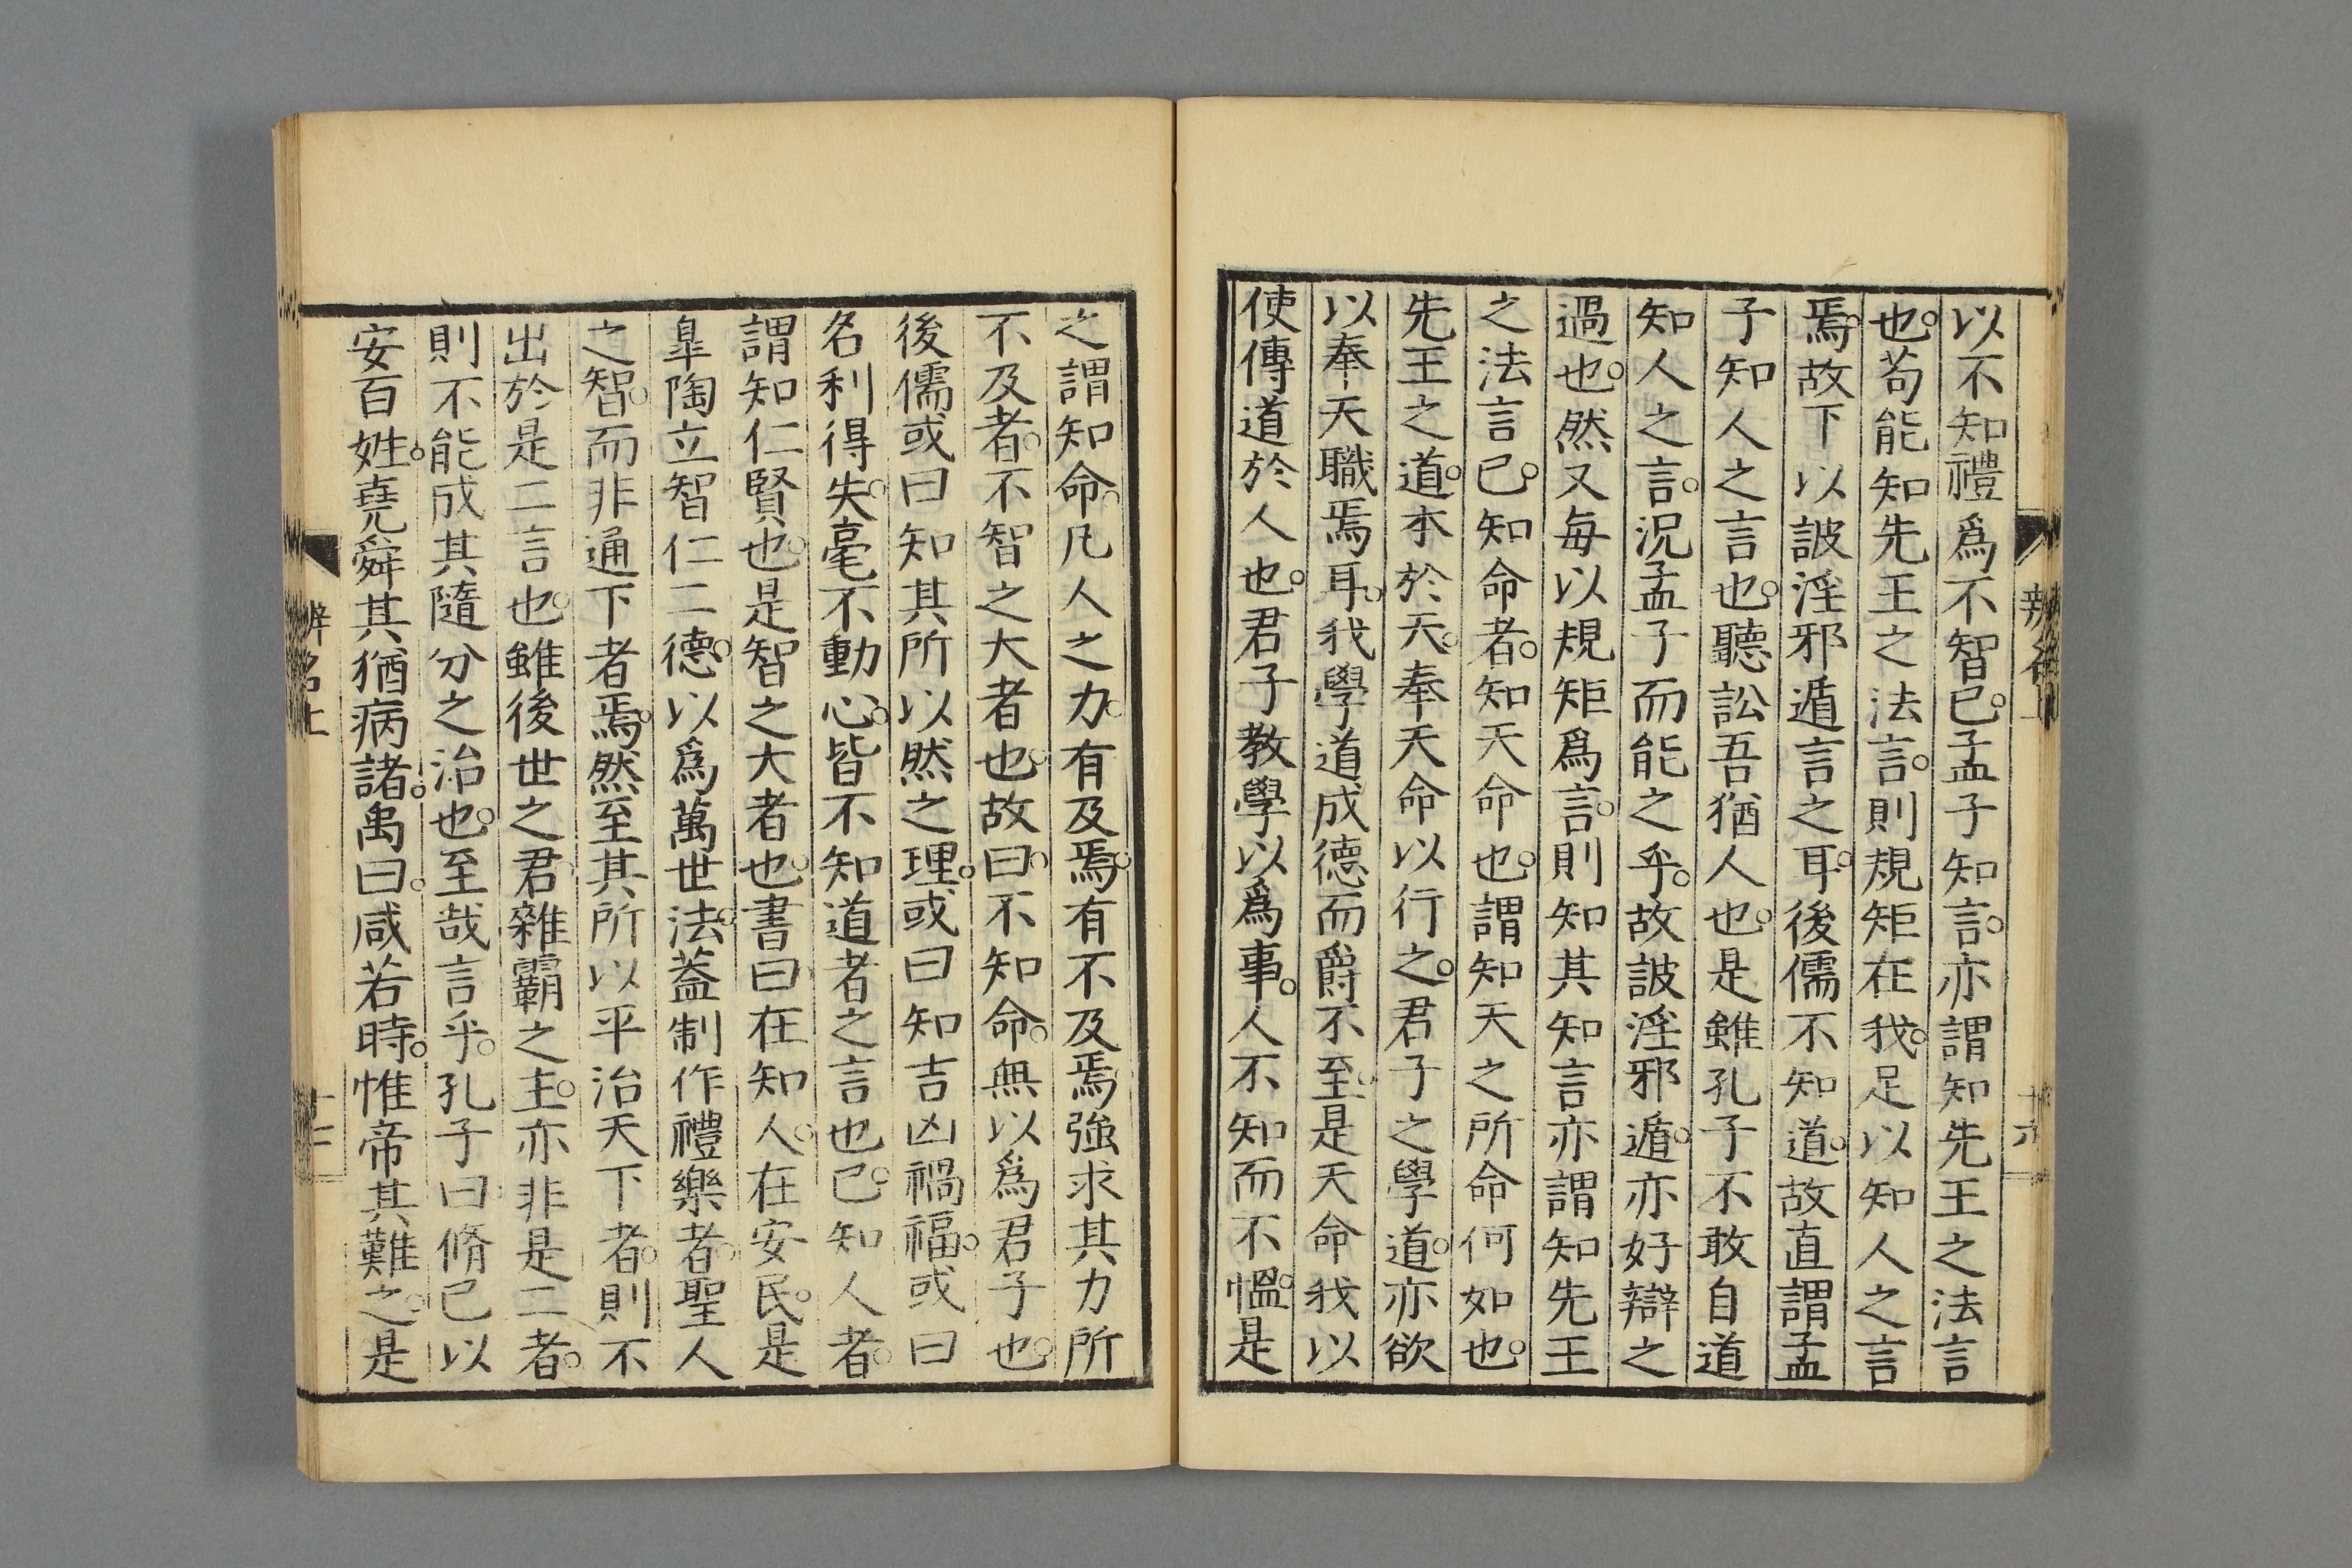 以不知禮爲不智已。孟子知言。亦謂知先王之法言
也。苟能知先王之法言。則規矩在我。足以知人之言
焉。故下以詖淫邪遁言之耳。後儒不知道。故直謂孟
子知人之言也。聽訟吾猶人也。是雖孔子不敢自道
知人之言。況孟子而能之乎。故詖淫邪遁。亦好辯之
過也。然又每以規矩爲言。則知其知言亦謂知先王
之法言已。知命者。知天命也。謂知天之所命何如也。
先王之道。本於天。奉天命以行之。君子之學道。亦欲
以奉天職焉耳。我學道成德而爵不至。是天命我以
使傳道於人也。君子教學以爲事。人不知而不慍。是
之謂知命。凡人之力。有及焉。有不及焉。強求其力所
不及者。不智之大者也。故曰。不知命。無以爲君子也。
後儒或曰知其所以然之理。或曰知吉凶禍福。或曰
名利得失。毫不動心。皆不知道者之言也已。知人者。
謂知仁賢也。是智之大者也。書曰在知人。在安民。是
皐陶立智仁二德。以爲萬世法。蓋制作禮樂者。聖人
之智。而非通下者焉。然至其所以平治天下者。則不
出於是二言也。雖後世之君。雜霸之主。亦非是二者。
則不能成其隨分之治也。至哉言乎。孔子曰脩己以
安百姓。堯舜其猶病諸。禹曰。咸若時。惟帝其難之。是
辨名上